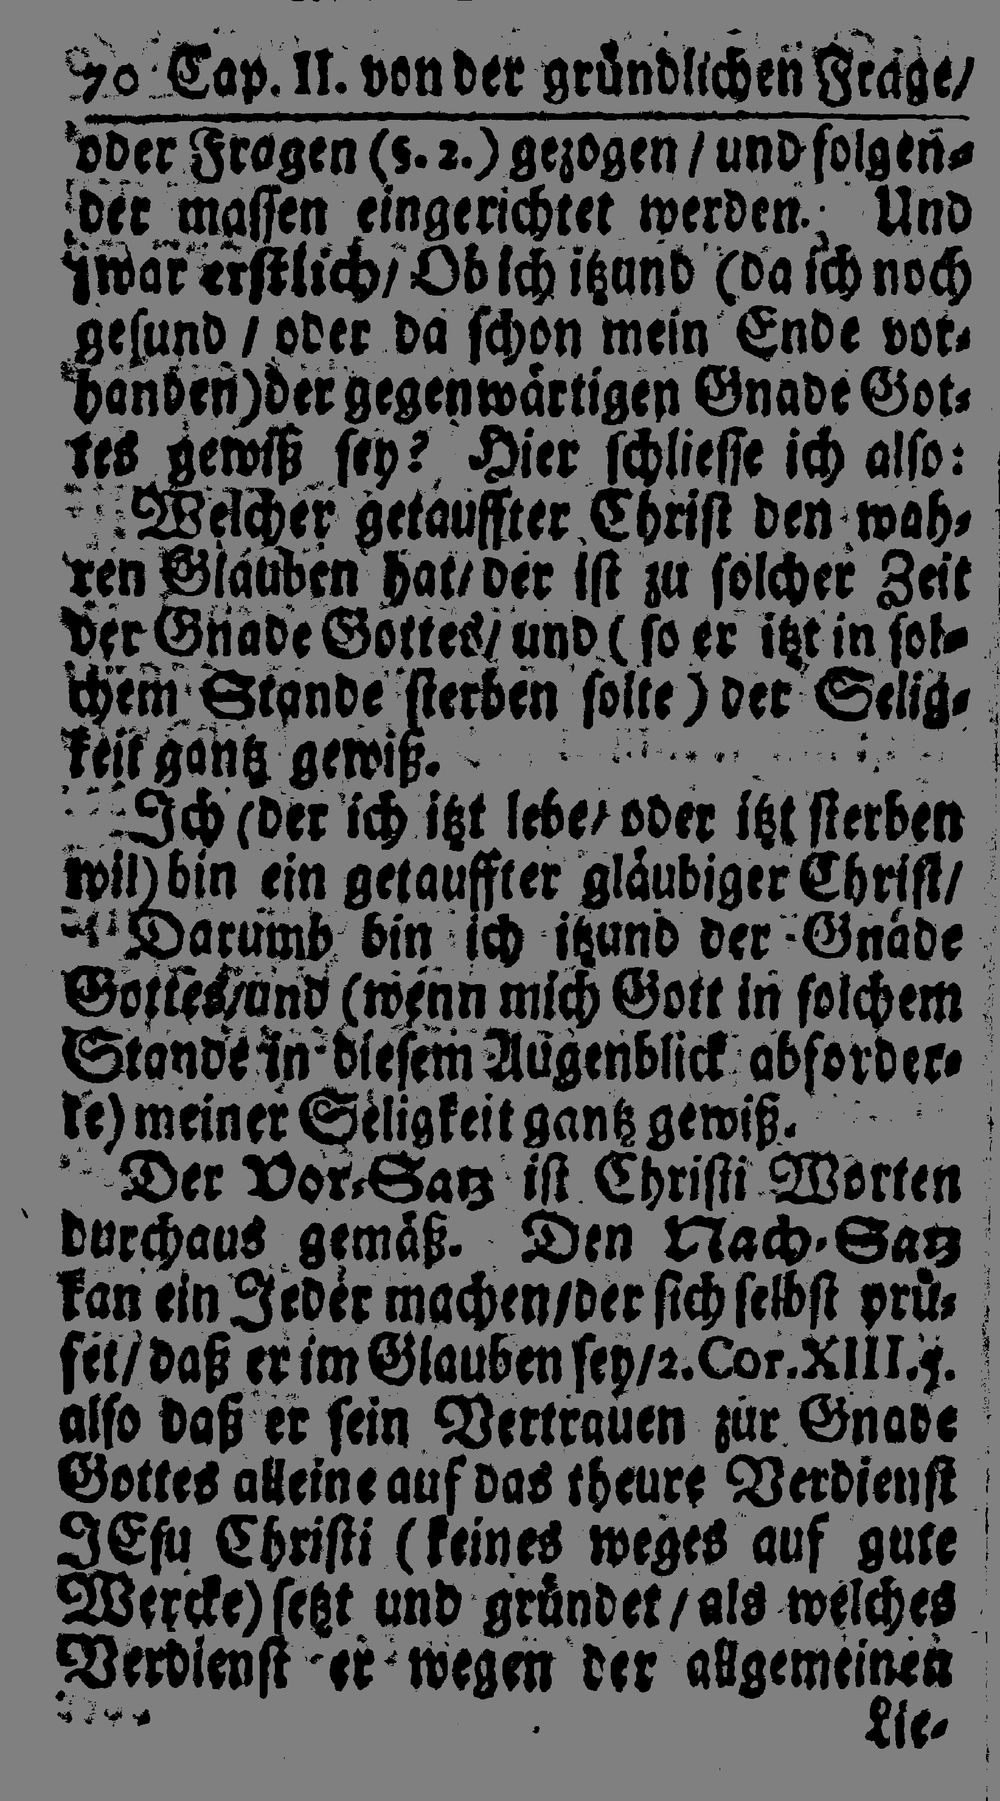 70 Cap. II. von der gründlichen Frage/
oder Fragen (§. 2.) gezogen / und folgen-
der massen eingerichtet werden. Und
zwar erstlich/ Ob ich itzund (da ich noch
gesund / oder da schon mein Ende vor-
handen) der gegenwärtigen Gnade Got-
tes gewiß sey? Hier schliesse ich also:
Welcher getauffter Christ den wah-
ren Glauben hat/ der ist zu solcher Zeit
der Gnade Gottes/ und ( so er itzt in sol-
chem Stande sterben solte ) der Selig-
keit gantz gewiß.
Ich (der ich itzt lebe/ oder itzt sterben
wil) bin ein getauffter gläubiger Christ/
Darumb bin ich itzund der Gnade
Gottes/und (wenn mich Gott in solchem
Stande in diesem Augenblick abforder-
te) meiner Seligkeit gantz gewiß.
Der Vor-Satz ist Christi Worten
durchaus gemäß. Den Nach-Satz
kan ein Jeder machen/der sich selbst prü-
fet/ daß er im Glauben sey/2. Cor. XIII. 5.
also daß er sein Vertrauen zur Gnade
Gottes alleine auf das theure Verdienst
JEsu Christi ( keines weges auf gute
Wercke) setzt und gründet / als welches
Verdienst er wegen der allgemeinen
Lie-